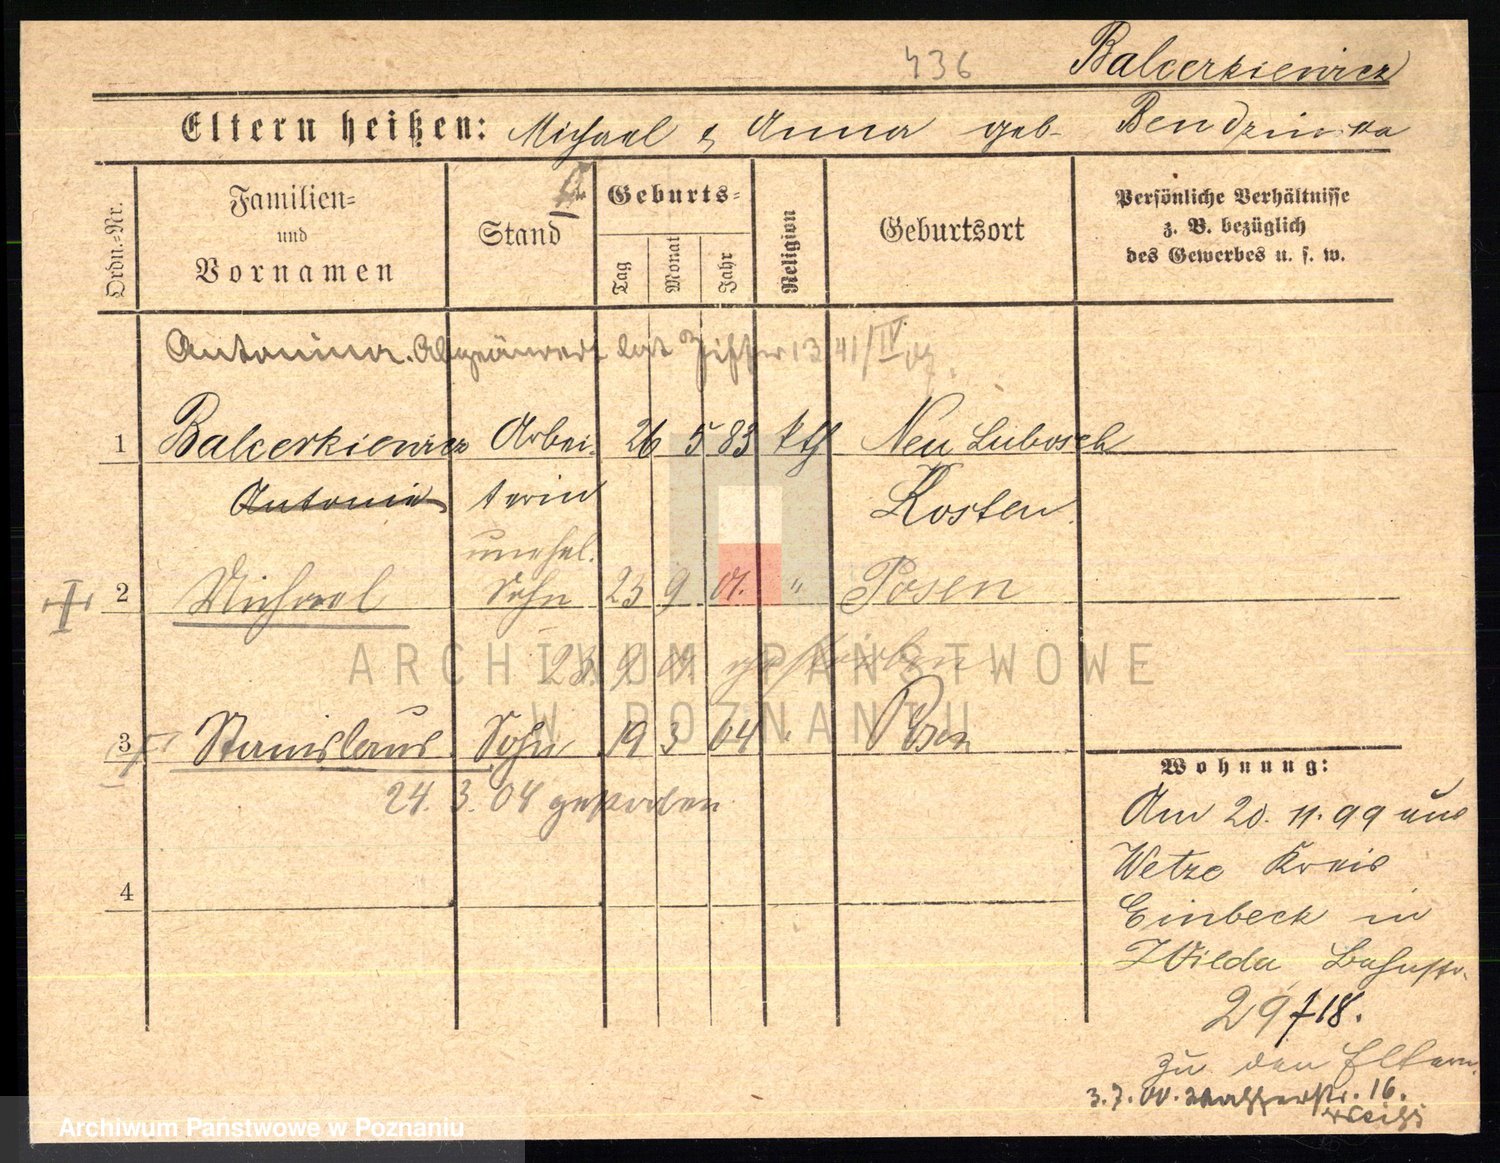 436 Balcerkiewicz
Eltern heißen: Michael & Anna geb. Bendzinska
Ordn.-Nr.
Familien- und Vornamen
Stand
Geburts-
Tag
Monat
Jahr
Religion
Geburtsort
Persönliche Verhältnisse
z. B. bezüglich
des Gewerbes u. s. w.
Antonina. Abgeändert laut Ziffer 13 41/IV 07.
1 Balcerkiewicz Arbei- 26 5 83 kth Neu Lubosch
Antonie terin Kosten
unehel.
2 Michael Sohn 23 9 01. " Posen
23. 9 01 gestorben
3 Stanislaus Sohn 19 3 04 " Posen
24. 3. 04 gestorben
4
Wohnung:
Am 20. 11. 99 aus
Wetze Kreis
Einbeck in
Wilda, Bahnstr.
29 f 18.
zu den Eltern.
3. 7. 00. 16.
ARCHIWUM PAŃSTWOWE
W POZNANIU
Archiwum Państwowe w Poznaniu